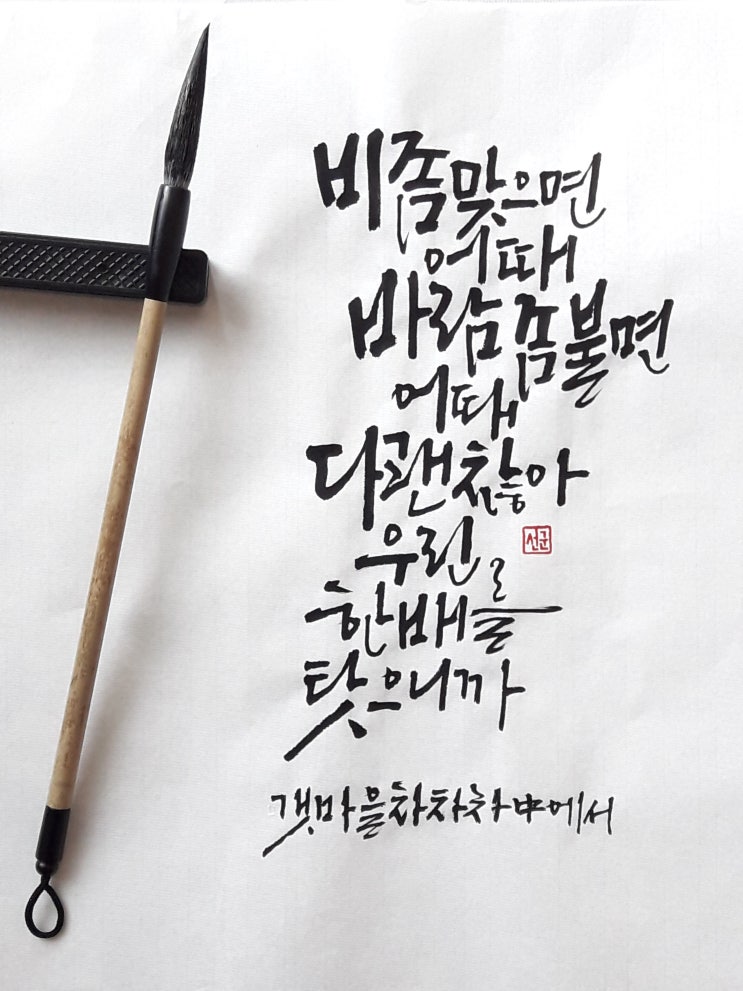 비좀맞으면
어때
바람좀불면
어때
다괜찮아
우린
한배를
탓으니까
선군
갯마을차차차中에서